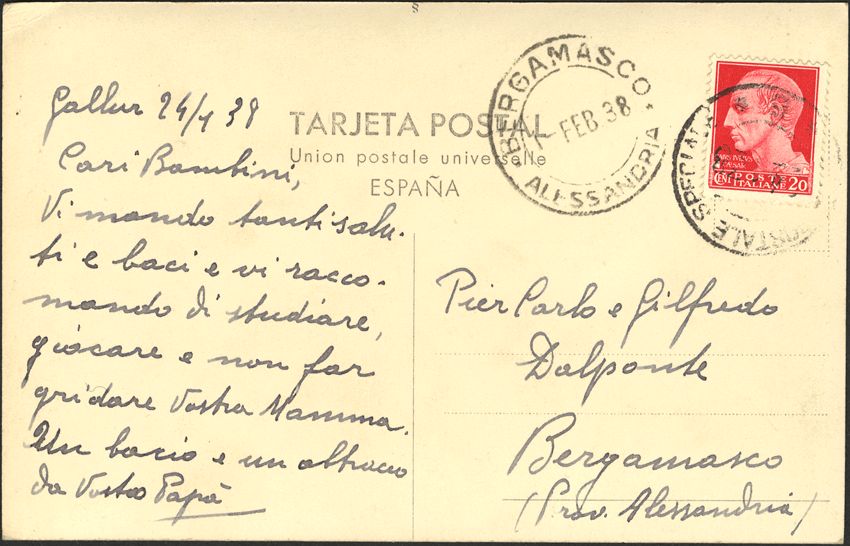 Gallur 24/1 38
TARJETA POSTAL
Union postale universelle
ESPAÑA
Cari Bambini,
Vi mando tanti salu-
ti e baci e vi racco-
mando di studiare,
giocare e non far
gridare Vostra Mamma.
Un bacio e un abbraccio
da Vostro Papà
BERGAMASCO
1- FEB. 38
ALESSANDRIA
POSTE
ITALIANE
CENT 20
SPECIALE
Pier Carlo e Gilfredo
Dalponte
Bergamasco
(Prov. Alessandria)